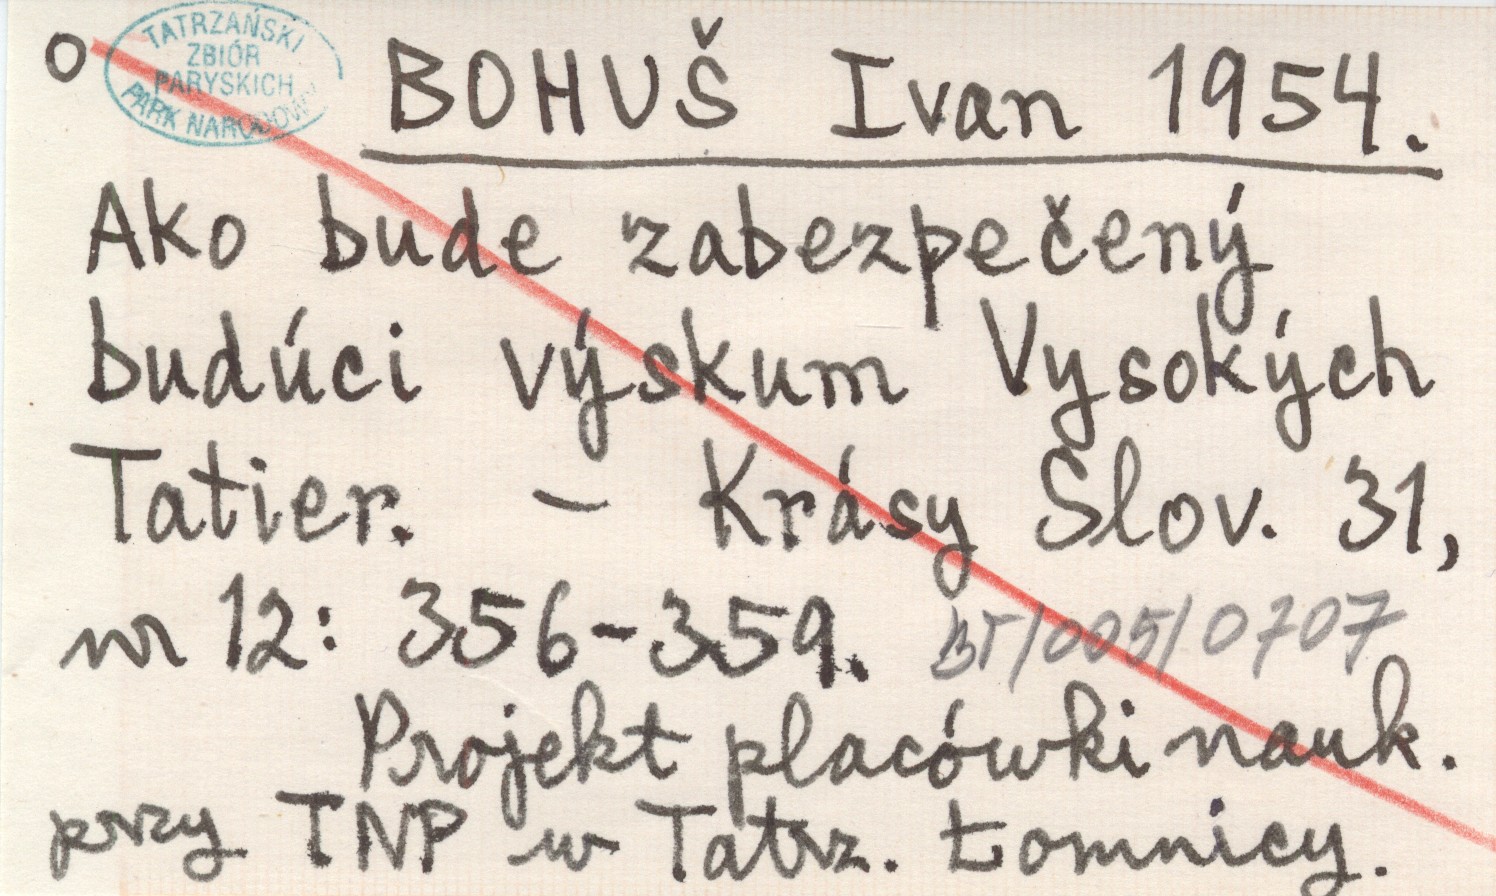 o
TATRZAŃSKI
ZBIÓR
PARYSKICH
PARK NARODOWY
BOHUŠ Ivan 1954.
Ako bude zabezpečený
budúci výskum Vysokých
Tatier. – Krásy Slov. 31,
nr 12: 356-359. BT/005/0707
Projekt placówki nauk.
przy TNP w Tatrz. Łomnicy.